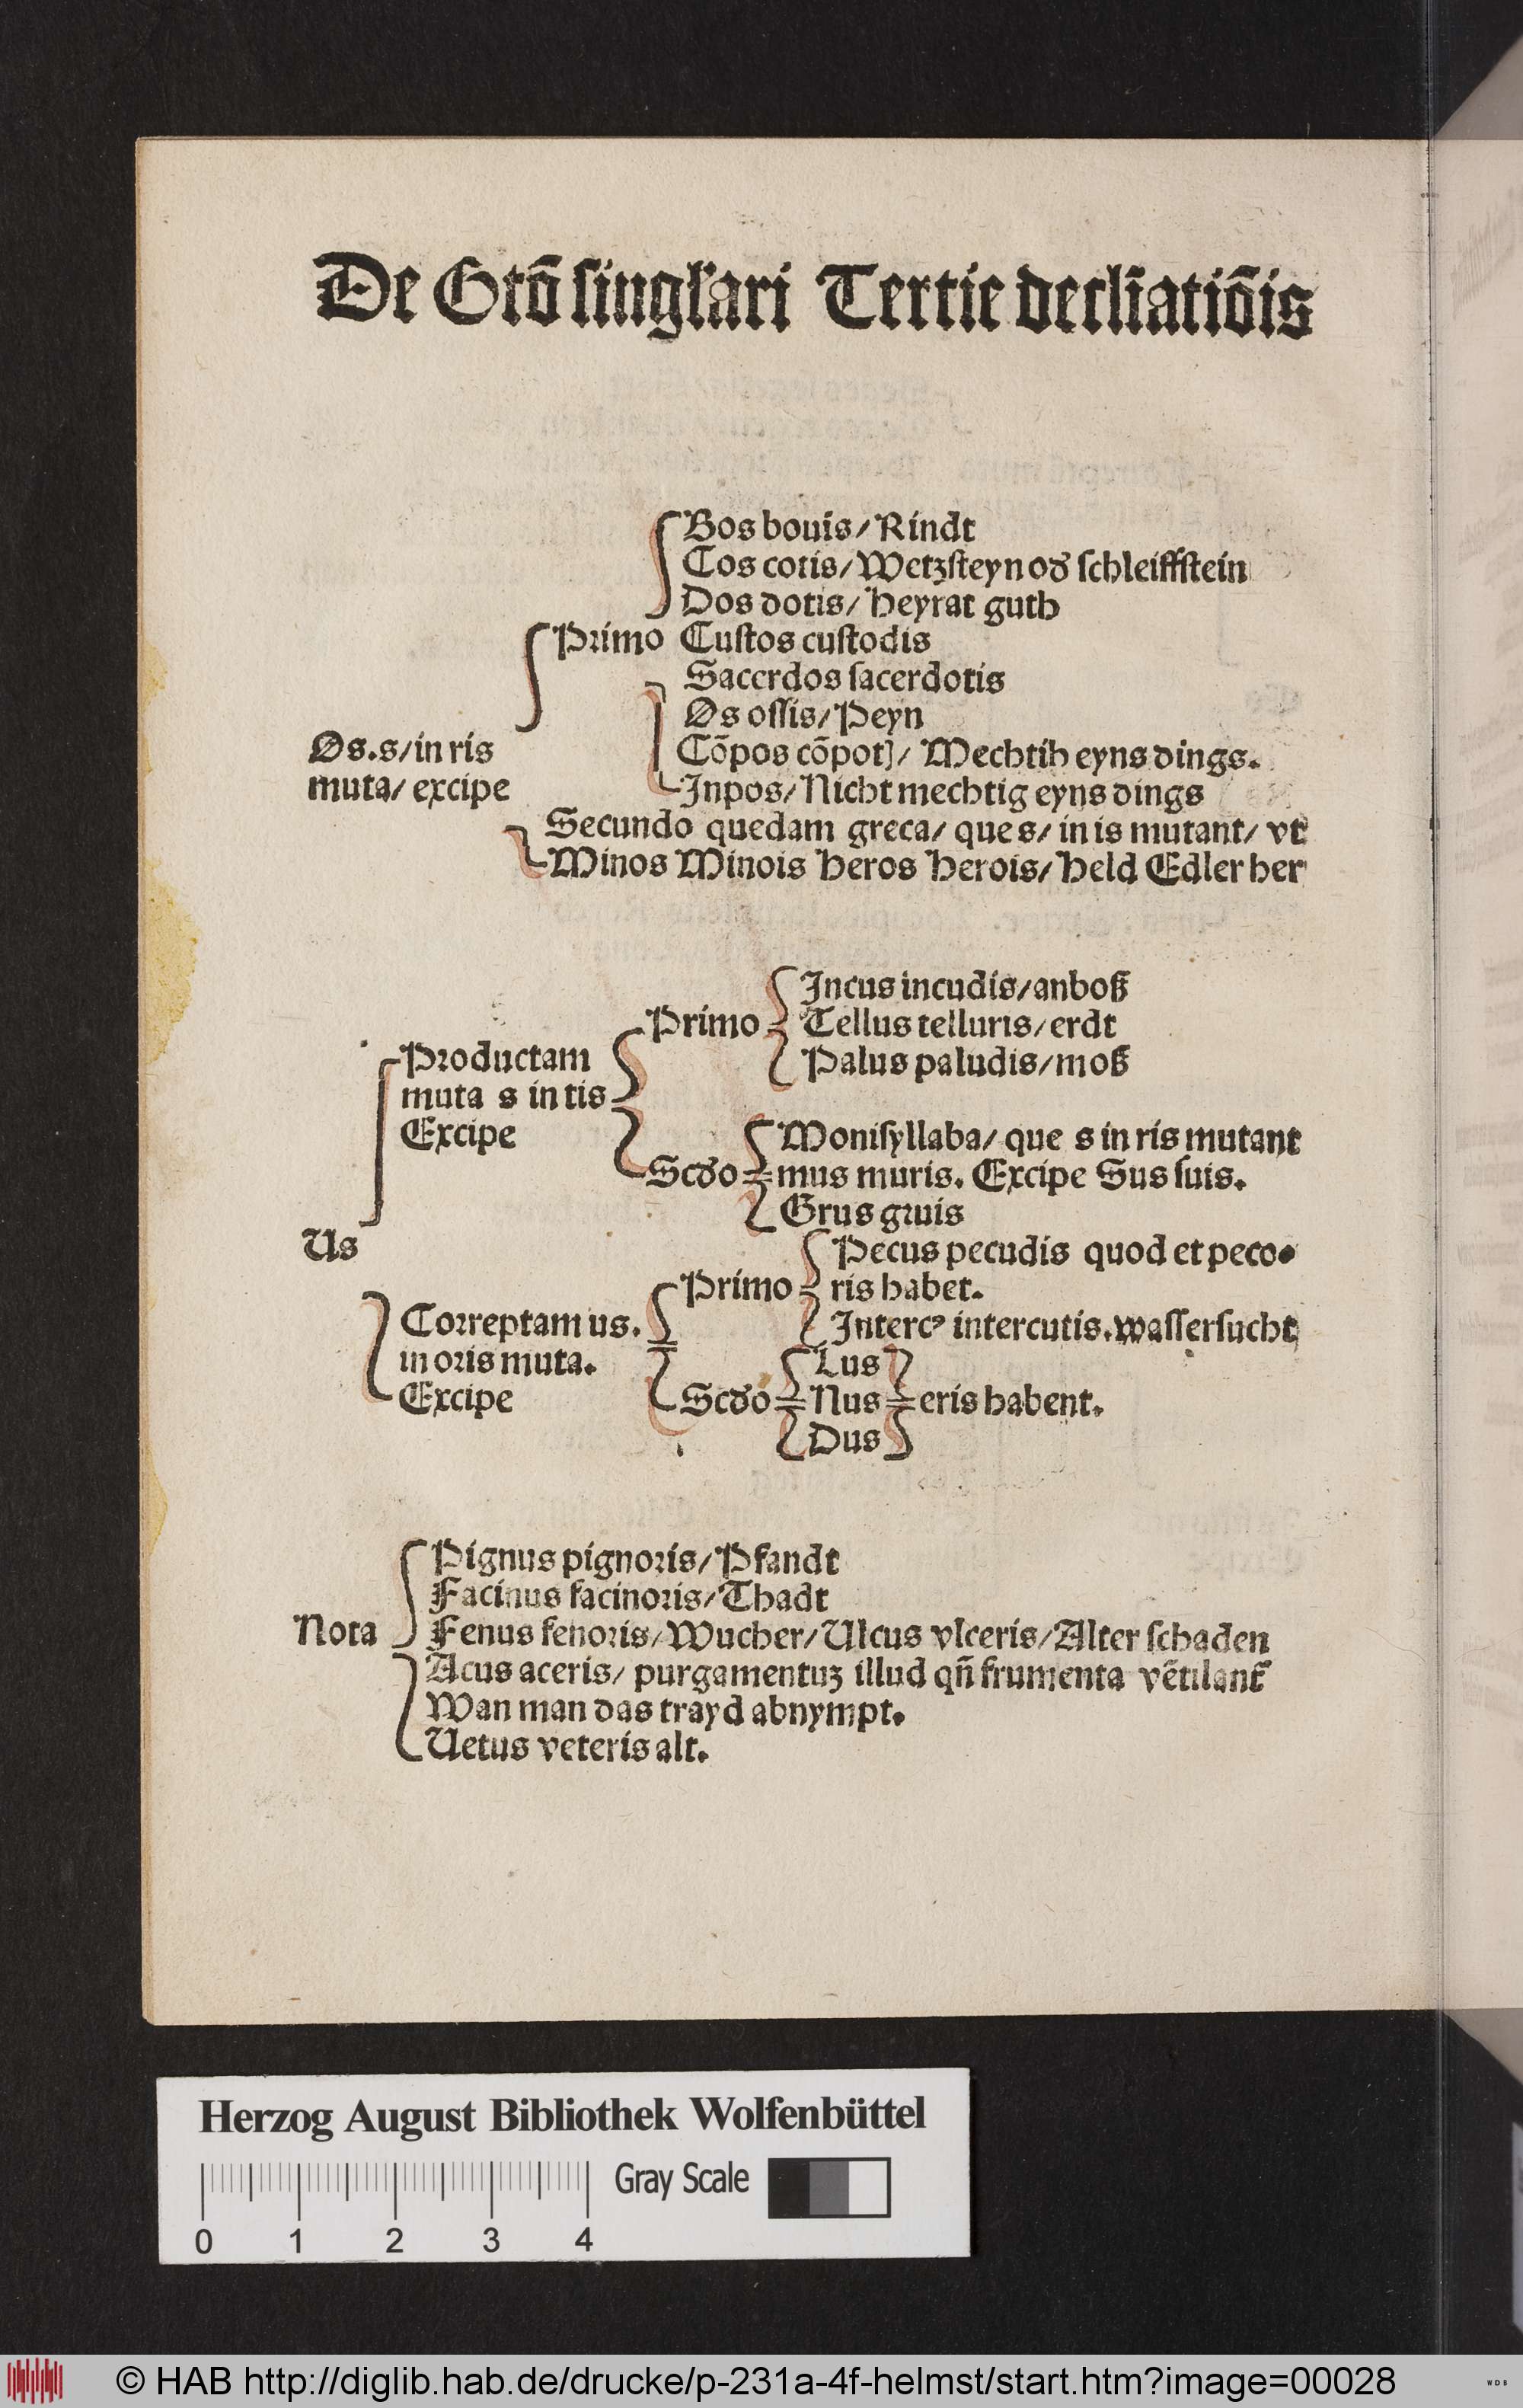 De Gtō singl'ari Tertie decliātiōis
Bos bouis/ Rindt
Cos cotis/ Wetzsteyn od' schleiffstein
Dos dotis/ Heyrat guth
Primo Custos custodis
Sacerdos sacerdotis
Os ossis/ Peyn
Os.s/ in ris
Cōpos cōpotꝭ/ Mechtih eyns dings.
muta/ excipe
Inpos/ Nicht mechtig eyns dings
Secundo quedam greca/ que s/ in is mutant/ vt
Minos Minois Heros Herois/ Held Edler her
Incus incudis/ anboß
Primo Tellus telluris/ erdt
Productam Palus paludis/ moß
muta s in tis
Excipe Monisyllaba/ que s in ris mutant
Scd'o mus muris. Excipe Sus suis.
Grus gruis
Us
Pecus pecudis quod et peco-
Primo ris habet.
Correptam us. Intercꝰ intercutis. wassersucht
in oris muta. Lus
Excipe Scd'o Nus eris habent.
Dus
Pignus pignoris/ Pfandt
Facinus facinoris/ Thadt
Nota Fenus fenoris/ Wucher/ Ulcus vlceris/ Alter schaden
Acus aceris/ purgamentuꝫ illud qñ frumenta vētilant᷑
Wan man das trayd abnympt.
Uetus veteris alt.
Herzog August Bibliothek Wolfenbüttel
Gray Scale
0 1 2 3 4
© HAB http://diglib.hab.de/drucke/p-231a-4f-helmst/start.htm?image=00028
WDB